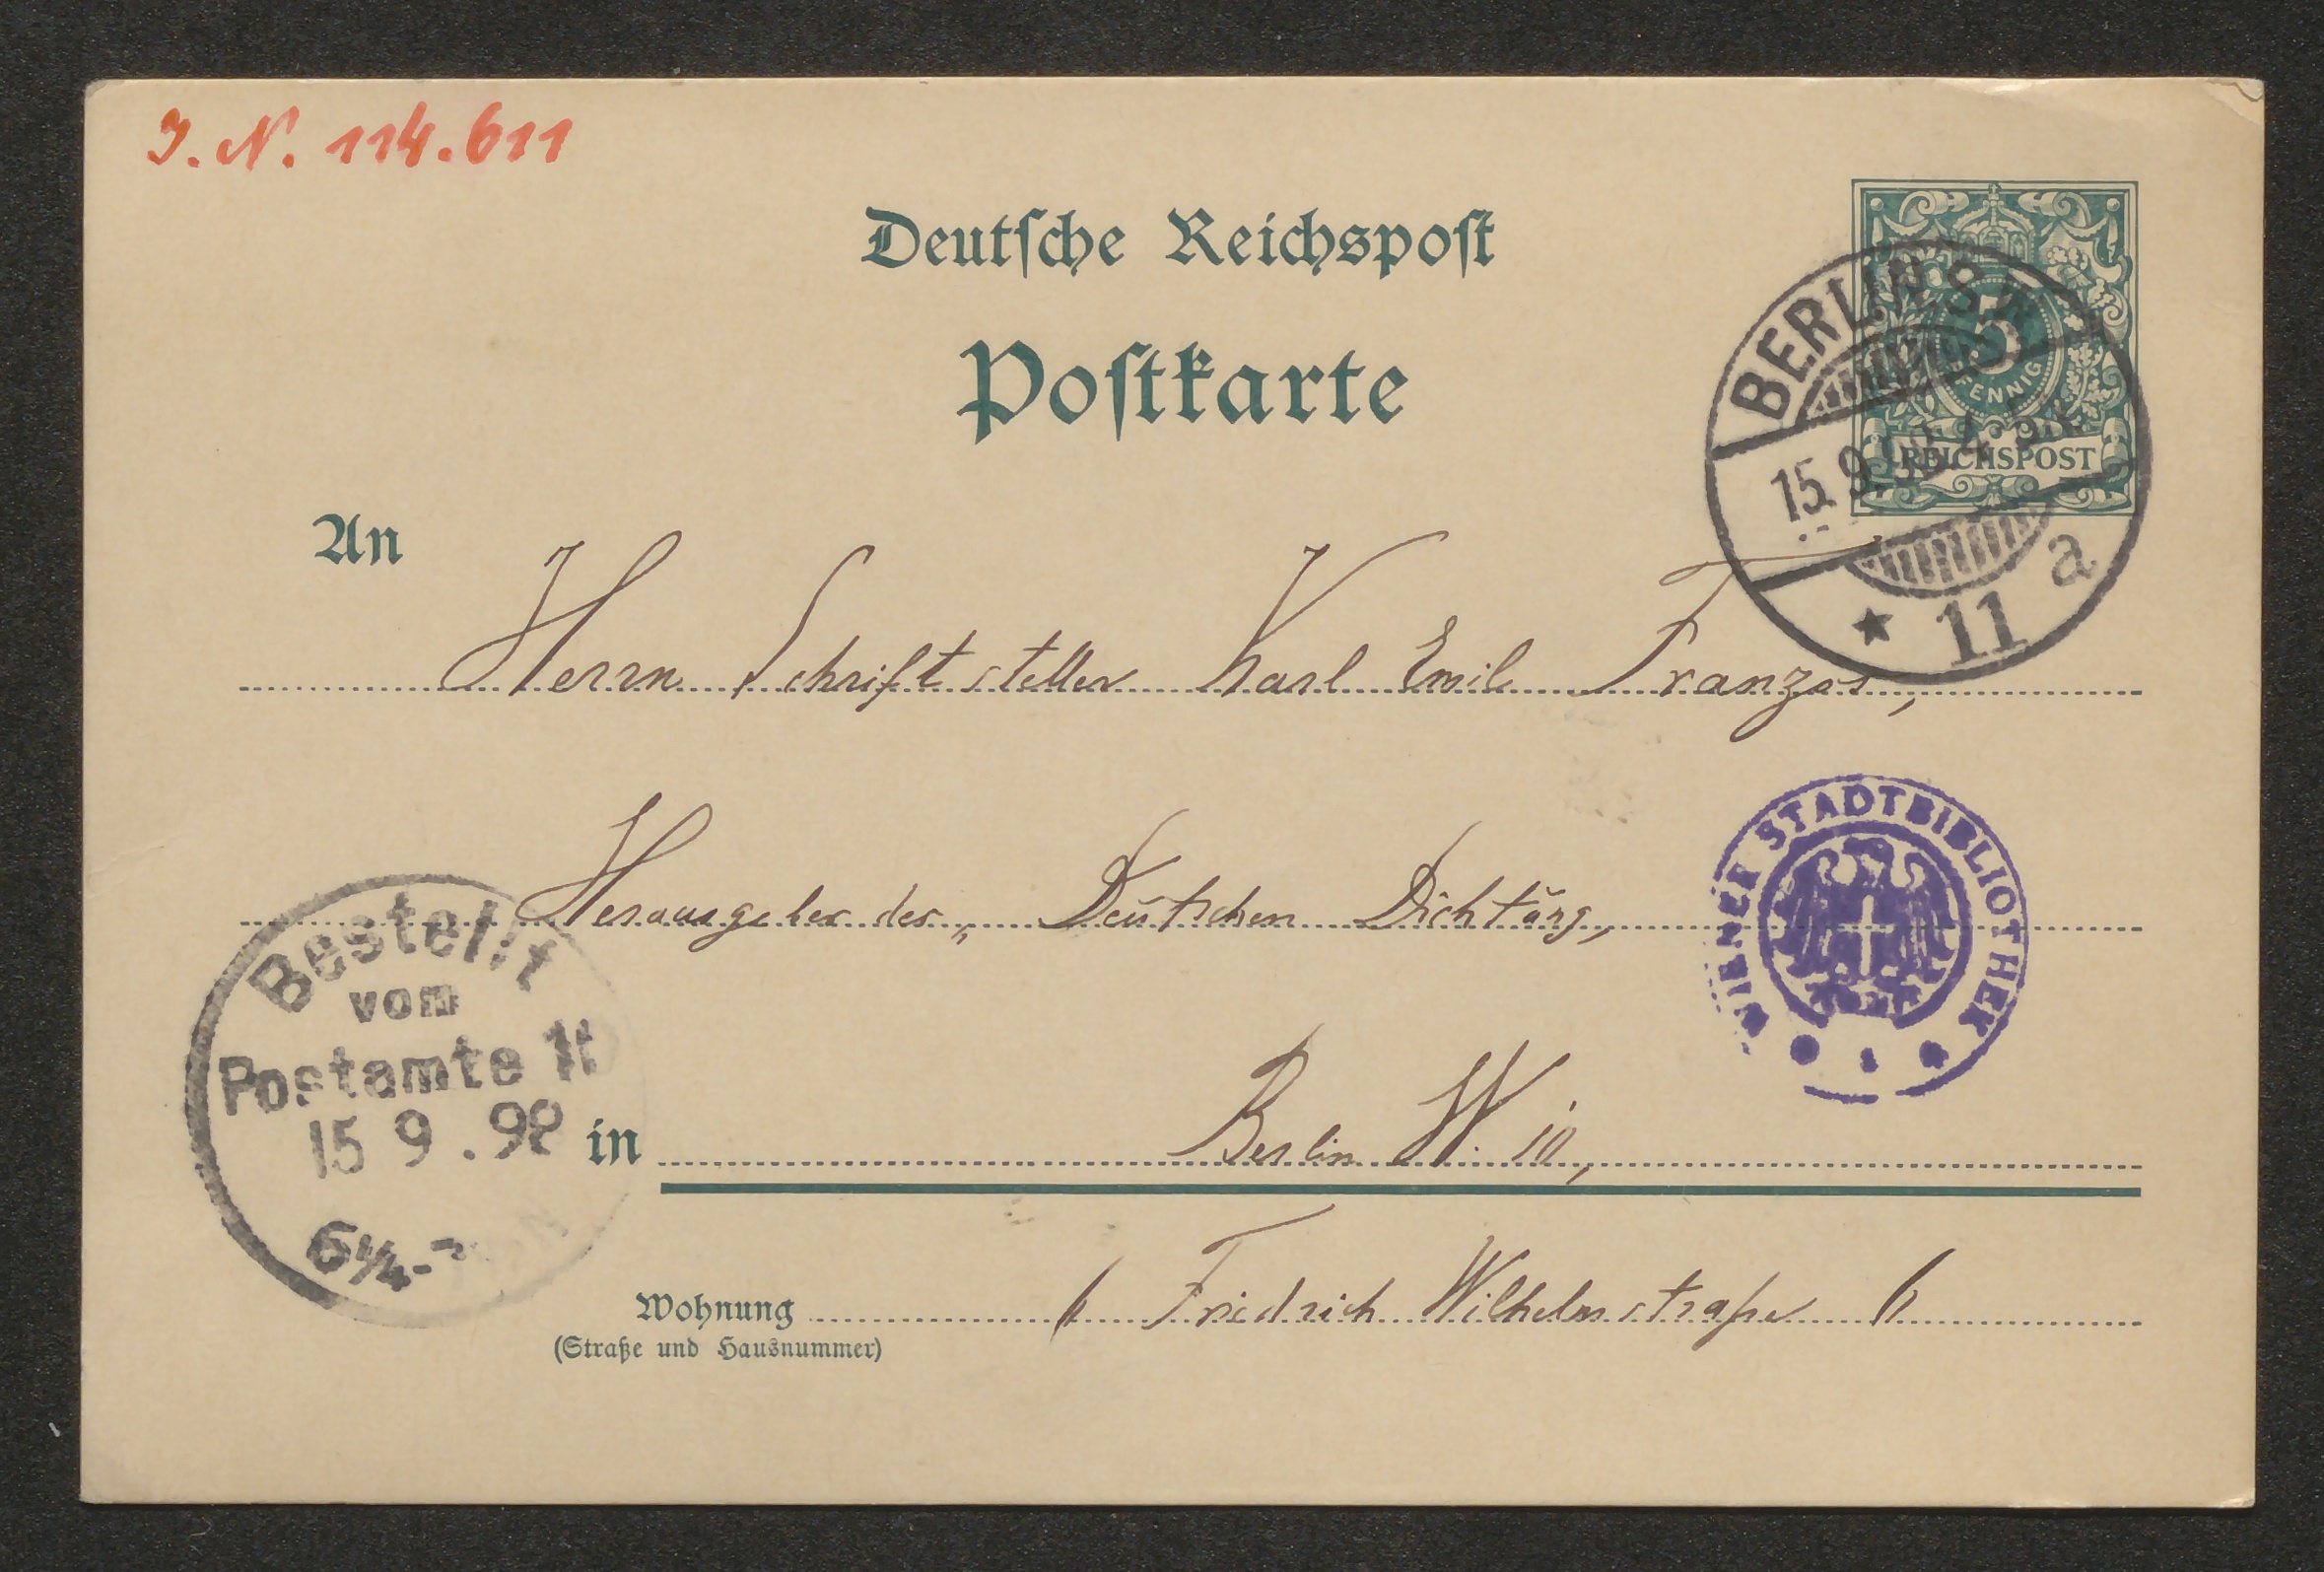 J. N. 114.611
Deutsche Reichspost
Postkarte
5
PFENNIG
REICHSPOST
BERLIN S.W.
15.9.
* 11 a
An
Herrn Schriftsteller Karl Emil Franzos,
Herausgeber der „Deutschen Dichtung,
WIENER STADTBIBLIOTHEK
Bestellt
vom
Postamte
15 9 . 98
6 1/4 -
in Berlin W. 10,
Wohnung 6 Friedrich Wilhelmstraße 6
(Straße und Hausnummer)